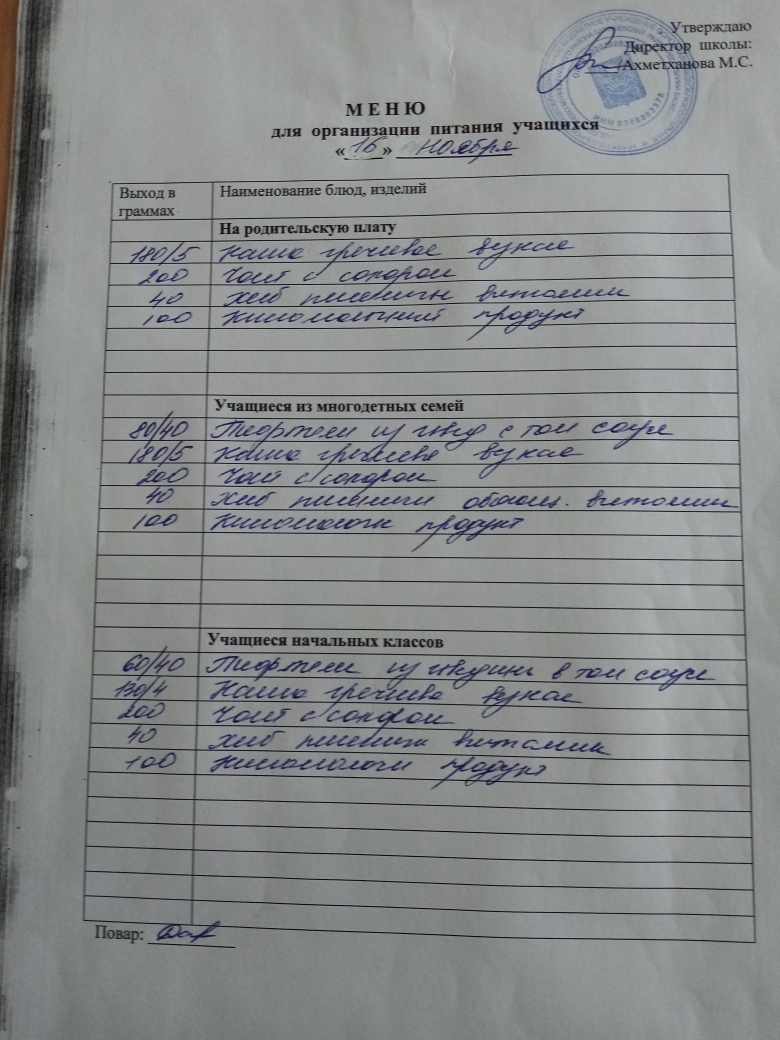 Утверждаю
Директор школы:
Ахметханова М.С.
ИНН 0208003378
М Е Н Ю
для организации питания учащихся
« 16 » ноября
Выход в граммах Наименование блюд, изделий
На родительскую плату
180/5 Каша гречневая вязкая
200 Чай с сахаром
40 Хлеб пшеничн витамин
100 Кисломолочный продукт
Учащиеся из многодетных семей
80/40 Тефтели из говяд с том соусе
180/5 Каша гречнева вязкая
200 Чай с сахаром
40 Хлеб пшеничн обогащ. витамин
100 Кисломолочн продукт
Учащиеся начальных классов
60/40 Тефтели из говядины в том соусе
130/4 Каша гречнева вязкая
200 Чай с сахаром
40 Хлеб пшеничн витамин
100 Кисломолочн продукт
Повар: